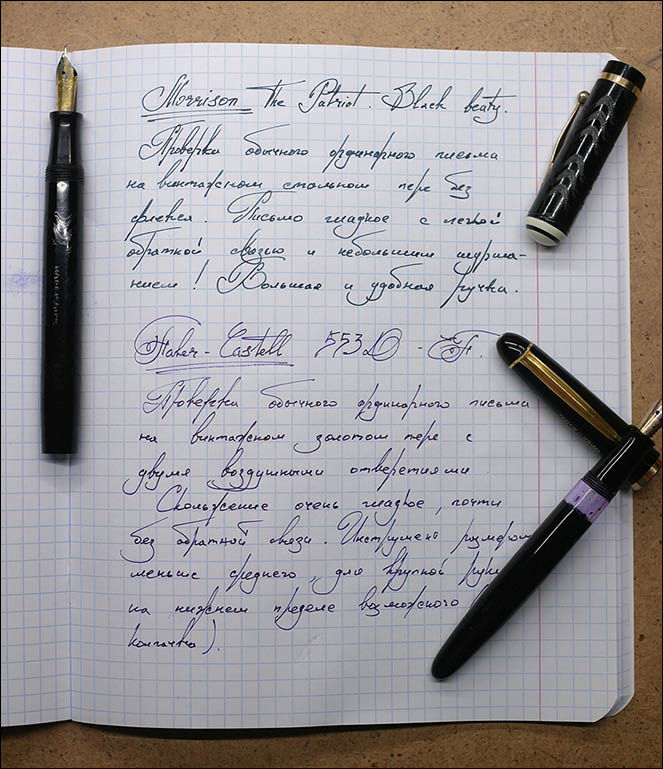 Morrison The Patriot. Black beaty.
Проверка обычного ординарного письма
на винтажном стальном пере без
флекса. Письмо гладкое с легкой
обратной связью и небольшим шурша-
нием! Большая и удобная ручка.
Faber-Castell 553D - EF.
Проверка обычного ординарного письма
на винтажном золотом пере с
двумя воздушными отверстиями.
Скольжение очень гладкое, почти
без обратной связи. Инструмент размером
меньше среднего, для крупной руки
на нижнем пределе возможного
колпачка).